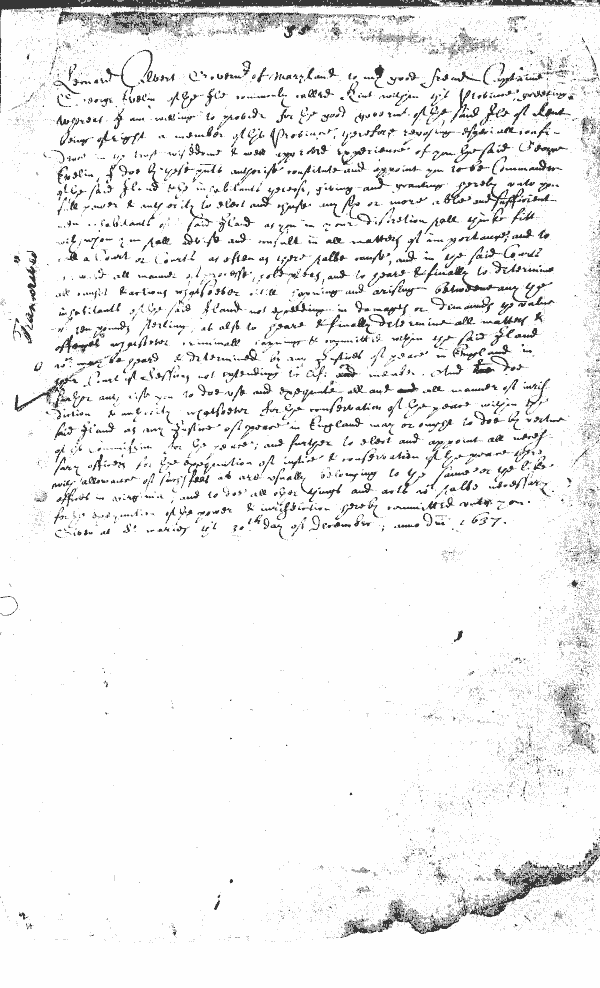 Leonard Calvert Governr of Maryland to my good friend Captaine
George Evelin of the Ile commonly called Kent within this Province, greeting.
whereas I am willing to provide for the good governmt of the said Ile of Kent
being of right a member of this Province, therefore reposing especiall confi-
dence in yr wisdome & well approved experience of you the said George
Evelin, I doe by these pnts authorise constitute and appoint you to be Commander
of the said Iland & the inhabitants thereof, giving and granting hereby unto you
full power & authority to elect and chuse any six or more able and sufficient
men inhabitants of said Iland as you in your discretion shall thinke fitt
with whom you shall advise and consult in all matters of importance, and to
call a Court or Courts as often as there shalbe cause, and in the said Courts
to award all manner of processe, hold pleas, and to heare & finally to determine
all causes & actions whatsoever civill happning and arising betweene any the
inhabitants of the said Iland not exceeding in damages or demands the value
of ten pounds sterling, as also to heare & finally determine all matters &
offences whatsoever criminall happning & committed within the said Iland
wch may be heard & determined by any Justices of peace in England in
their Court of Session not extending to life and member. And doe
further authorise you to doe use and execute all and all manner of juris
diction & authority whatsoever for the conservation of the peace within the
said Iland as any Justice of peace in England may or ought to doe by vertue
of his Commission for the peace; and further to elect and appoint all neces
sary officers for the execution of justice & conservation of the peace there
with allowance of such fees as are usually belonging to the same or the like
offices in virginia; and to doe all other things and acts wch shalbe necessary
for the execution of the power & jurisdiction hereby committed unto you.
Given at St maries this 30th day of December, anno dni 1637.